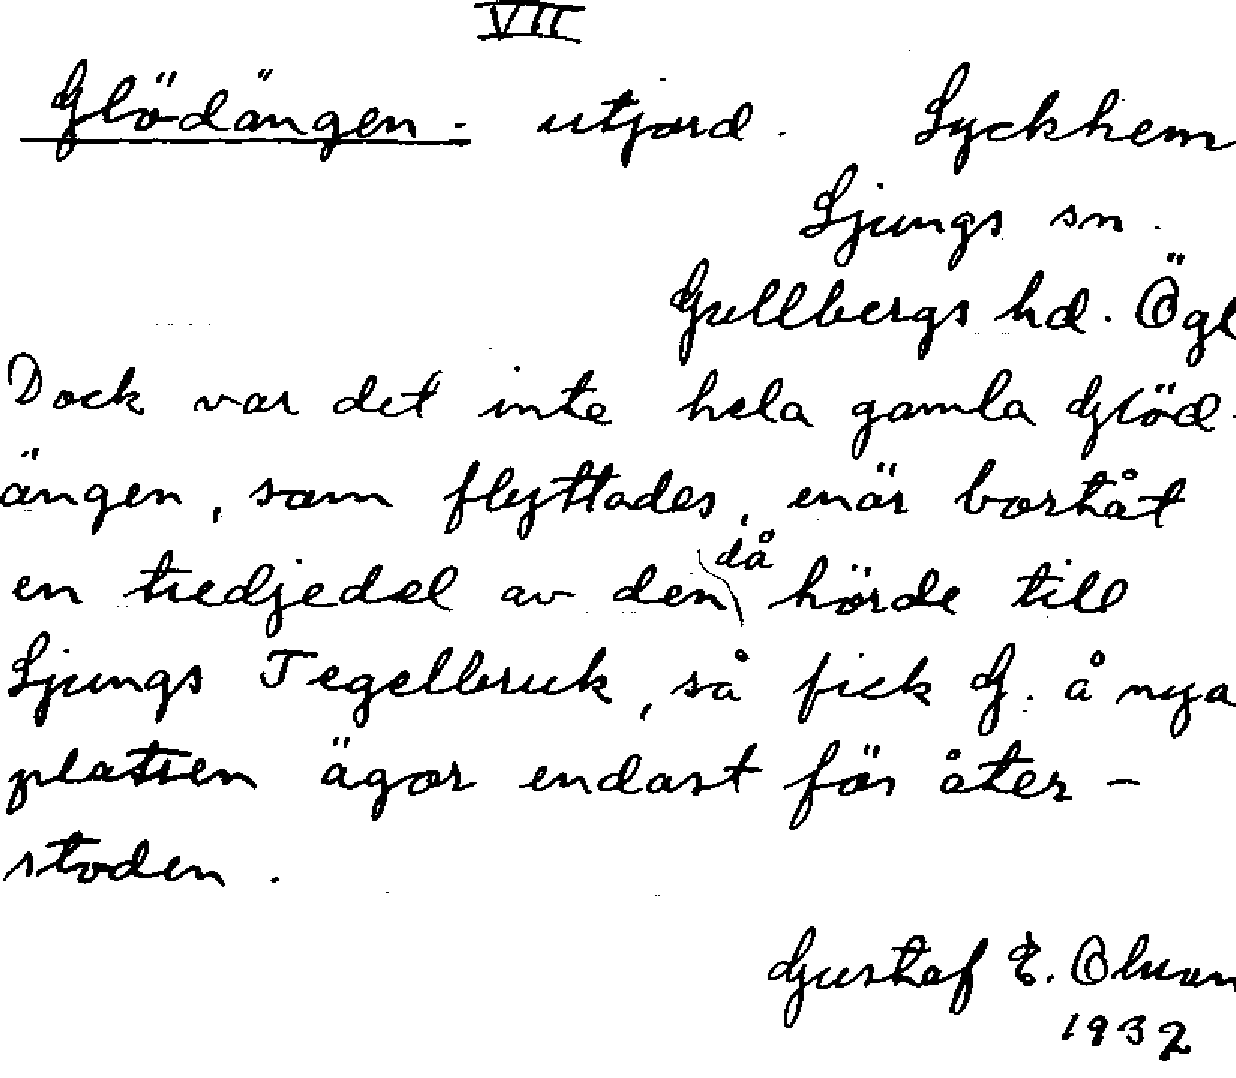 VII
Glödängen. utjord. Lyckhem
Ljungs sn.
Gullbergs hd. Ögl
Dock var det inte hela gamla Glöd-
ängen, som flyttades, enär bortåt
då
en tredjedel av den hörde till
Ljungs Tegelbruk, så fick G. å nya
platsen ägor endast för åter-
stoden.
Gustaf E. Olsson
1932